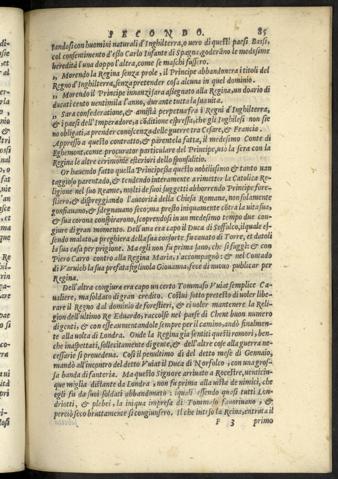 SECONDO. 85
tandosi con huomini naturali d'Inghilterra, o vero di questi paesi Bassi,
col consentimento d'esso Carlo Infante di Spagna, goderãno le medesime
heredità l'una doppo l'altra, come se maschi fussero.
„ Morendo la Regina senza prole, il Principe abbandonera i titoli del
Regno d'Inghilterra, senza pretender cosa alcuna in quel dominio.
„ Morendo il Principe innanzi sara assegnato alla Regina, un doario di
ducati cento ventimila l'anno, durante tutta la sua vita.
„ Sara confederatione, & amistà perpetua frà i Regni d'Inghilterra,
& i paesi dell'Imperadore, a cõditione espressa, che gli Inghilesi non sie
no obligati, a prender conoscenza delle guerre tra Cesare, & Francia.
Appresso a questo contratto, & parentela fatta, il medesimo Conte di
Eghemont, come procurator particulare del Principe, usò la sera con la
Regina le altre cirimonie esteriori dello sponsalitio.
Or havendo fatto quella Principessa questo nobilissimo & tanto van
taggioso parentado, & tendendo interamente a rimettere la Catolica Re-
ligione nel suo Reame, molti de suoi suggetti abborrendo Principe fore-
stiero, & dispreggiando l'autorità della Chiesa Romana, non solamente
gonfiavano, & sdegnavano seco; ma presto iniquamente cõtra la vita sua,
& sua corona conspirarono, scoprendosi in un medesimo tempo due con
giure di gran momento. Dell'una era capo il Duca di Soffolco, il quale es-
sendo malato, a preghiera della sua consorte fu cavato di Torre, et datoli
la sua casa per prigione. Ma egli non fu prima sano, che si fuggì: & con
Piero Carro contro alla Regina Maria, s'accompagnò: & nel Contado
di Varvich la sua prefata figliuola Giovanna, fece di nuovo publicar per
Regina.
Dell'altra congiura era capo un certo Tommaso Vuiat semplice Ca-
valiere, ma soldato di gran credito. Costui sotto pretesto di voler libe-
rare il Regno dal dominio de forestieri, & di voler mantenere la Reli-
gion dell'ultimo Re Eduardo, raccolse nel paese di Chent buon numero
di genti, & con esse aumentandole sempre per il camino, andò finalmen-
te alla volta di Londra. Onde la Regina già sentiti questi romori, ben-
che inaspettati, sollecitamente di gente, & dell'altre cose alla guerra ne-
cessarie si provedeva. Così il penultimo dì del detto mese di Gennaio,
mandò all'incontro del detto Vuiat il Duca di Norfolco, con una gros-
sa banda di fanteria. Ma questo Signore arrivato a Rocestre, venticin-
que miglia distante da Londra, non fu prima alla vista de nimici, che
egli fu da suoi soldati abbandonato: iquali essendo quasi tutti Lon-
driotti, & plebei, la iniqua impresa di Tommaso favorivano, &
perciò seco bruttamente si congiunsero. Il che inteso la Reina, entrata il
F 3 primo